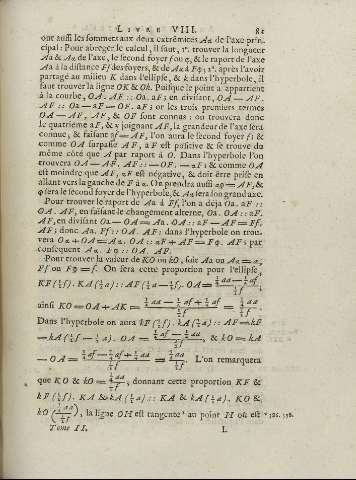 LIVRE VIII. 81
ont aussi les sommets aux deux extrémités Aa de l'axe prin-
cipal: Pour abréger le calcul, il faut, 1°. trouver la longueur
Aa & Aα de l'axe, le second foyer f ou φ, & le raport de l'axe
Aa à la distance Ff des foyers, & de Aα à Fφ; 2°. après l'avoir
partagé au milieu K dans l'ellipse, & k dans l'hyperbole, il
faut trouver la ligne OK & Ok. Puisque le point a appartient
à la courbe, OA. AF :: Oa. aF; en divisant, OA — AF.
AF :: Oa — aF = OF. aF; or les trois premiers termes
OA — AF, AF, & OF sont connus: on trouvera donc
le quatriéme aF, & y joignant AF, la grandeur de l'axe sera
connue, & faisant af = AF, l'on aura le second foyer f; &
comme OA surpasse AF, aF est positive & se trouve du
même côté que A par raport à O. Dans l'hyperbole l'on
trouvera OA — AF. AF :: — OF. — aF; & comme OA
est moindre que AF, aF est négative, & doit être prise en
allant vers la gauche de F à α. On prendra aussi αφ = AF, &
φ sera le second foyer de l'hyperbole, & Aα sera son grand axe.
Pour trouver le raport de Aa à Ff, l'on a déja Oa. aF ::
OA. AF, en faisant le changement alterne, Oa. OA :: aF.
AF, en divisant Oa — OA = Aa. OA :: aF — AF = Ff.
AF; donc Aa. Ff :: OA. AF: dans l'hyperbole on trou-
vera Oα + OA = Aα. OA :: αF + AF = Fφ. AF; par
conséquent Aα. Fφ :: OA. AF.
Pour trouver la valeur de KO ou kO, soit Aa ou Aα = a,
Ff ou Fφ = f. On sera cette proportion pour l'ellipse,
KF (½f). KA (½a) :: AF (½a — ½f). OA = (½aa — ½af)/(½f)
ainsi KO = OA + AK = (½aa — ½af + ½af)/(½f) = (½aa)/(½f).
Dans l'hyperbole on aura kF (½f). kA (½a) :: AF = kF
— kA (½f — ½a). OA = (½af — ½aa)/(½f), & kO = kA
— OA = (½af — ½af + ½aa)/(½f) = (½aa)/(½f). L'on remarquera
que KO & kO = (½aa)/(½f), donnant cette proportion KF &
kF (½f). KA & kA (½a) :: KA & kA (½a). KO &
kO ((½aa)/(½f)), la ligne OH est tangente * au point H où est * 386. 398.
Tome II. L